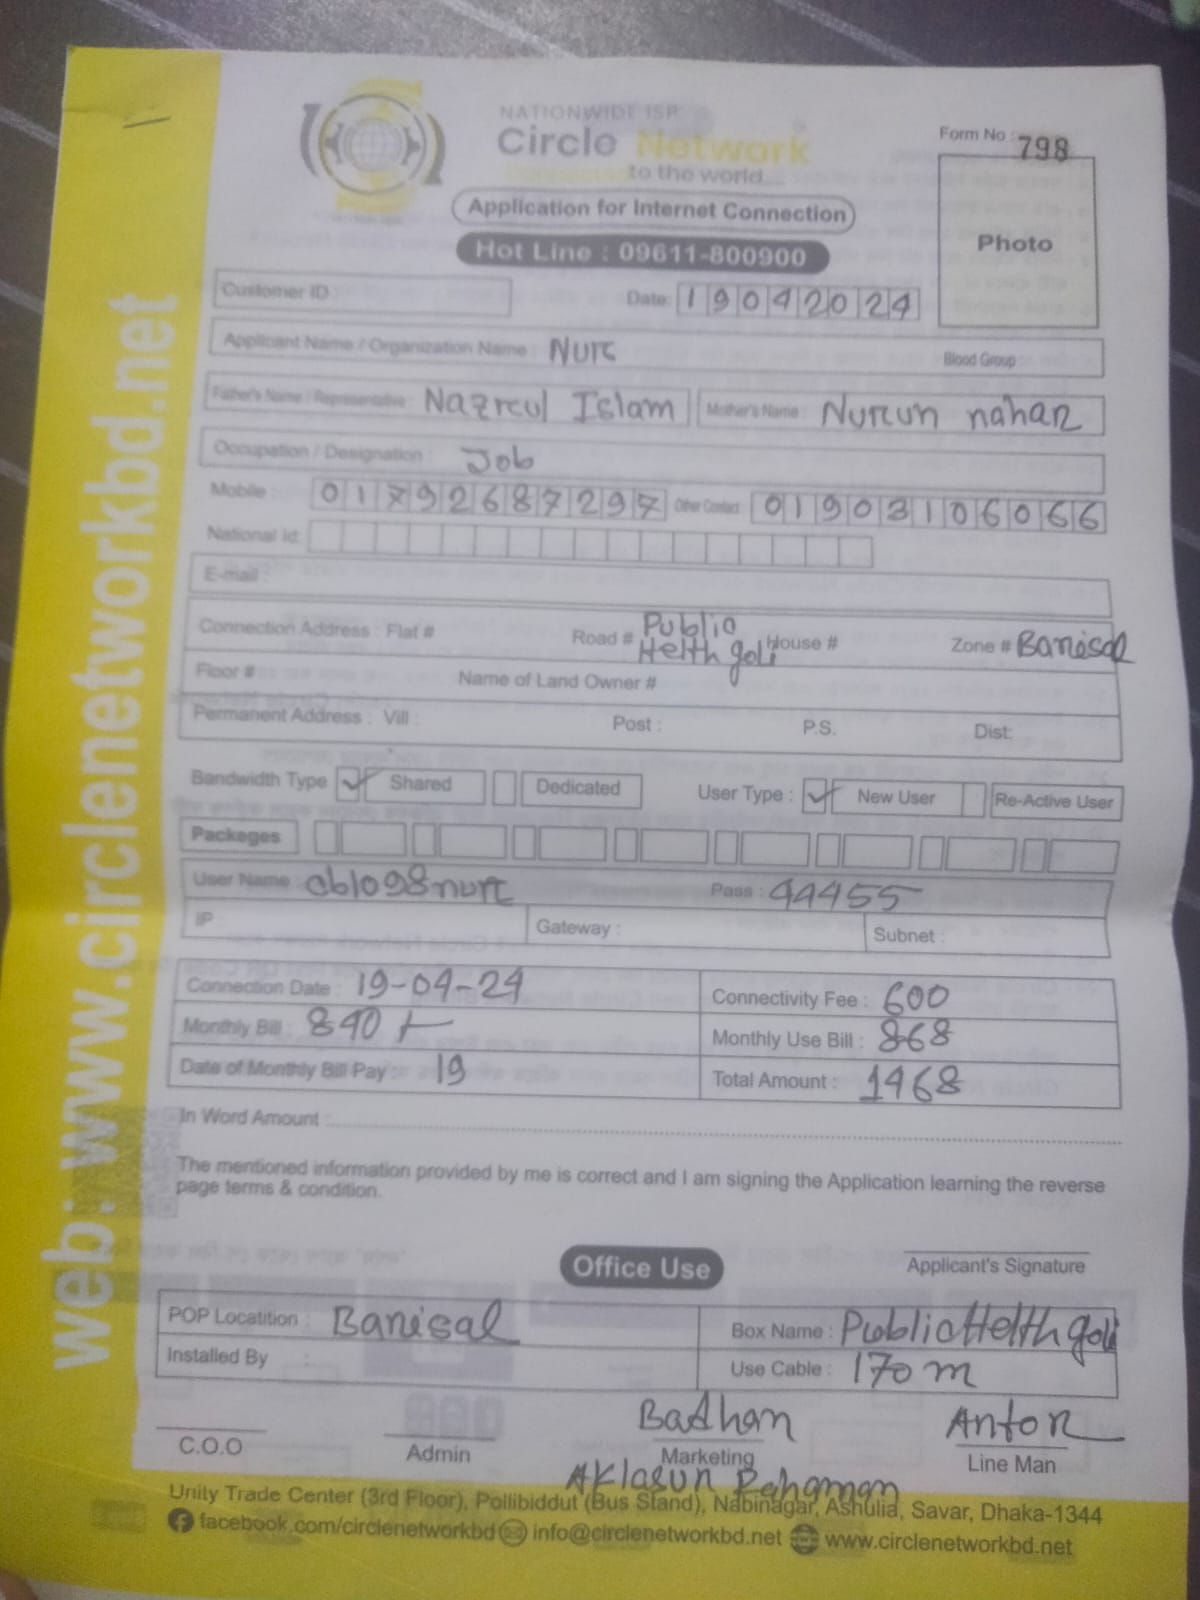 NATIONWIDE ISP
Circle Network
to the world...
Application for Internet Connection
Hot Line : 09611-800900
Form No : 798
Photo
Customer ID
Date: 19042024
Applicant Name / Organization Name : Nur
Blood Group :
Father's Name / Representative : Nazrul Islam
Mother's Name : Nurun nahar
Occupation / Designation : Job
Mobile : 01792687297
Other Contact : 01903106066
National Id:
E-mail :
Connection Address : Flat # Road # Public Helth goli House # Zone # Barisal
Floor # Name of Land Owner #
Permanent Address : Vill : Post : P.S. Dist:
Bandwidth Type Shared Dedicated User Type : New User Re-Active User
Packeges
User Name : cb1098nur Pass : 44455
IP Gateway : Subnet :
Connection Date : 19-04-24 Connectivity Fee : 600
Monthly Bill : 840 Monthly Use Bill : 868
Date of Monthly Bill Pay : 19 Total Amount : 1468
In Word Amount :
The mentioned information provided by me is correct and I am signing the Application learning the reverse
page terms & condition.
Applicant's Signature
Office Use
POP Locatition : Barisal Box Name : Public Helth goli
Installed By : Use Cable : 170 m
Badhan Antor
C.O.O Admin Marketing Line Man
Unity Trade Center (3rd Floor), Pollibiddut (Bus Stand), Nabinagar, Ashulia, Savar, Dhaka-1344
facebook.com/circlenetworkbd info@circlenetworkbd.net www.circlenetworkbd.net
web: www.circlenetworkbd.net